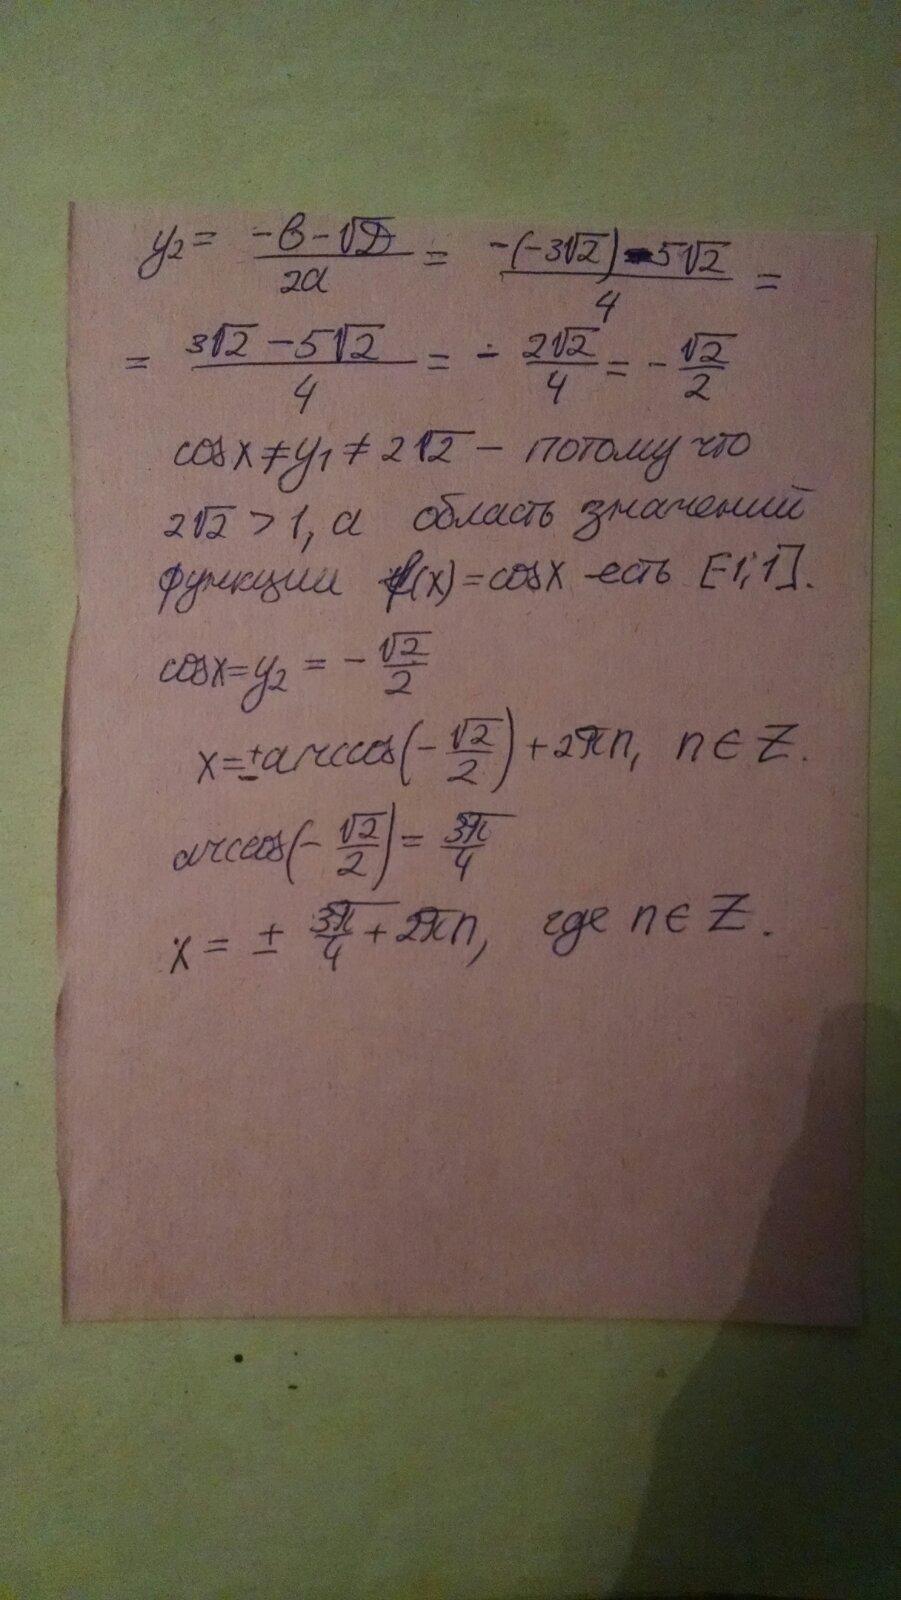 y₂ = (-b - √D)/(2a) = (-(-3√2) - 5√2)/4 =
= (3√2 - 5√2)/4 = - 2√2/4 = - √2/2
cosx ≠ y₁ ≠ 2√2 – потому что
2√2 > 1, а область значений
функции f(x) = cosx есть [-1; 1].
cosx = y₂ = - √2/2
x = ± arccos(- √2/2) + 2πn, n ∈ Z.
arccos(- √2/2) = 3π/4
x = ± 3π/4 + 2πn, где n ∈ Z.